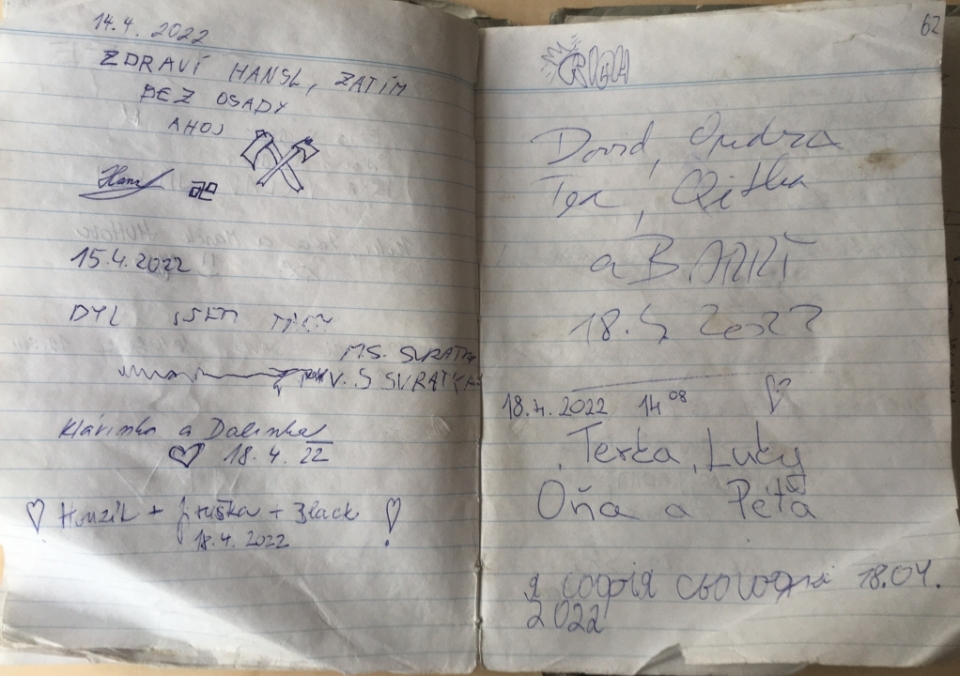 14.4. 2022
ZDRAVÍ HANSL, ZATÍM
BEZ OSADY
AHOJ
Hans
15.4.2022
BYL JSEM
M.S. SVRATKA
V.S SVRATKA
Klárinka a Dalinka
18.4.22
Honzík + Jiruška + Black
18.4.2022
62
David, Ondra
a BART
18.4 2022
18.4.2022 14 08
Terka, Luky
Oňa a Péťa
я софія сьогодні 18.04.
2022